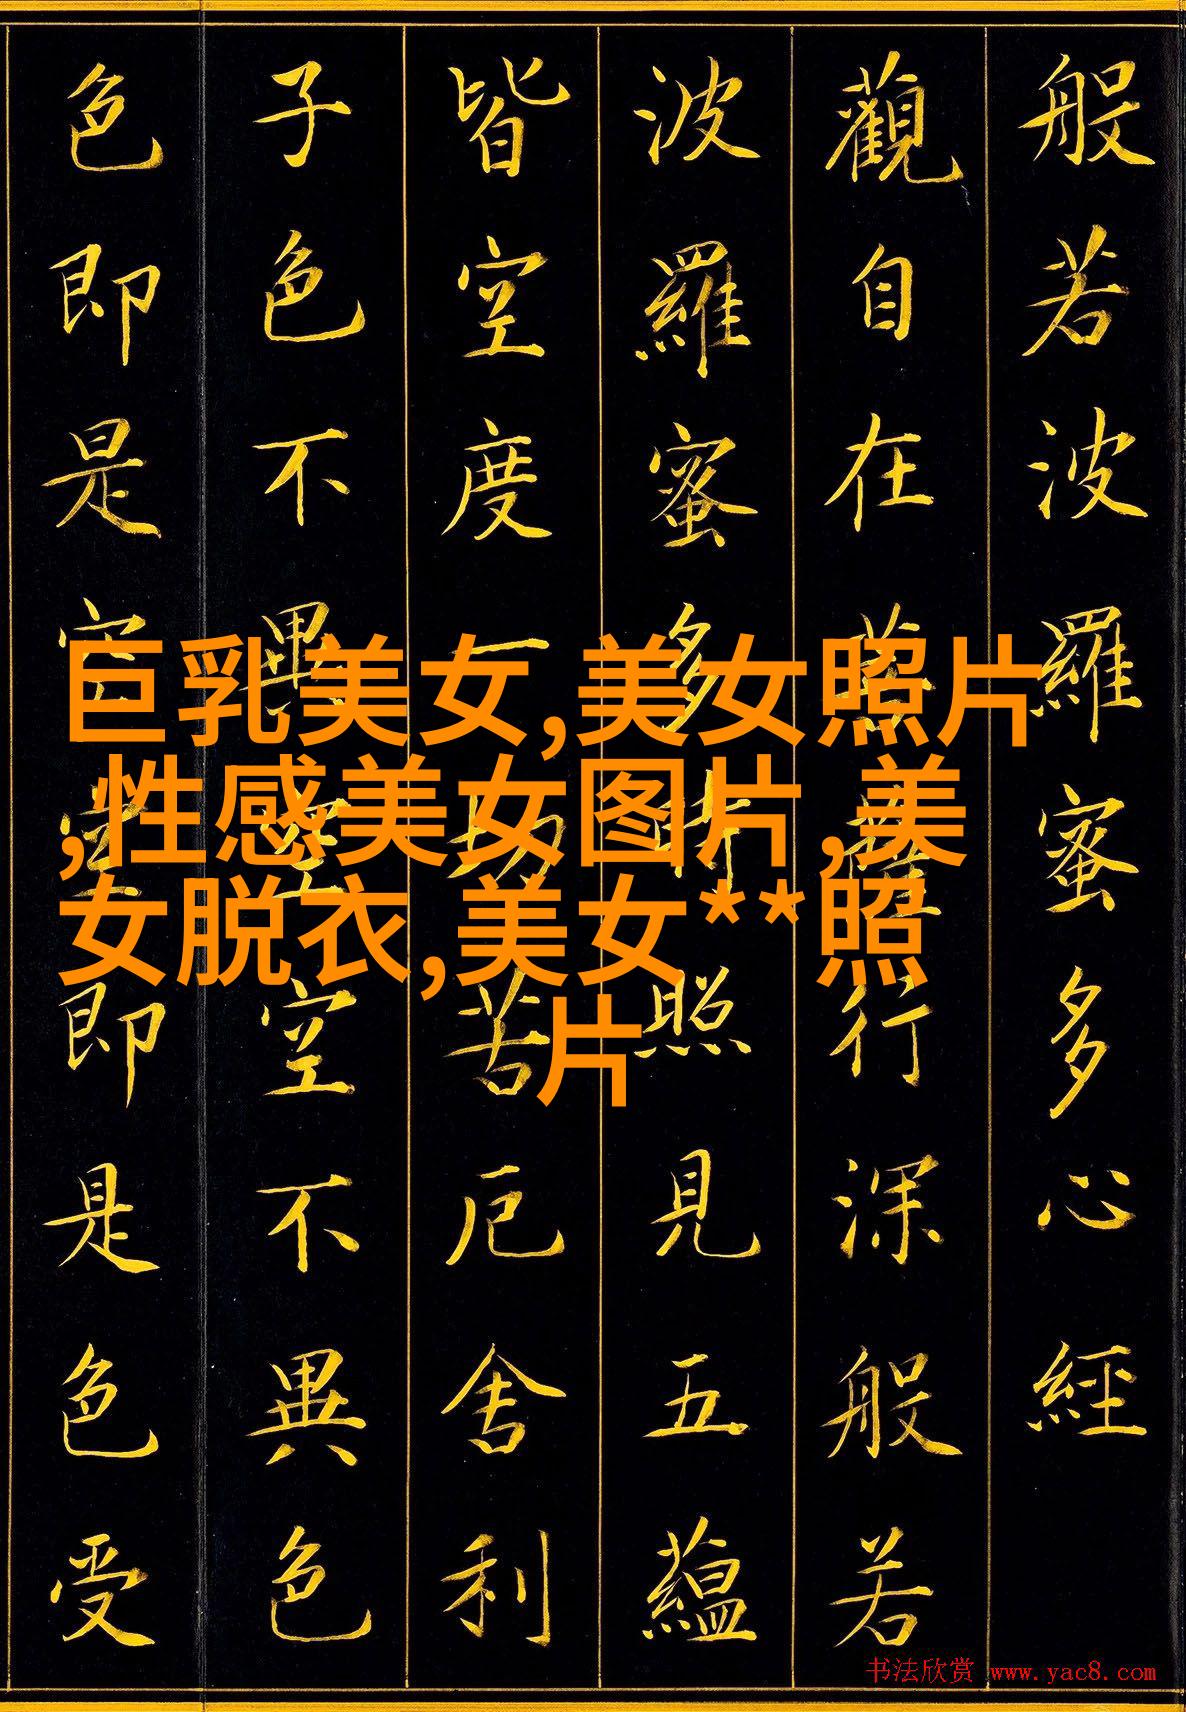 般若波羅蜜多心經
觀自在菩薩行深般若
波羅蜜多時照見五蘊
皆空度一切苦厄舍利
子色不異空空不異色
色即是空空即是色受
巨乳美女,美女照片
,性感美女图片,美
女脱衣,美女**照
片
书法欣赏 www.yac8.com